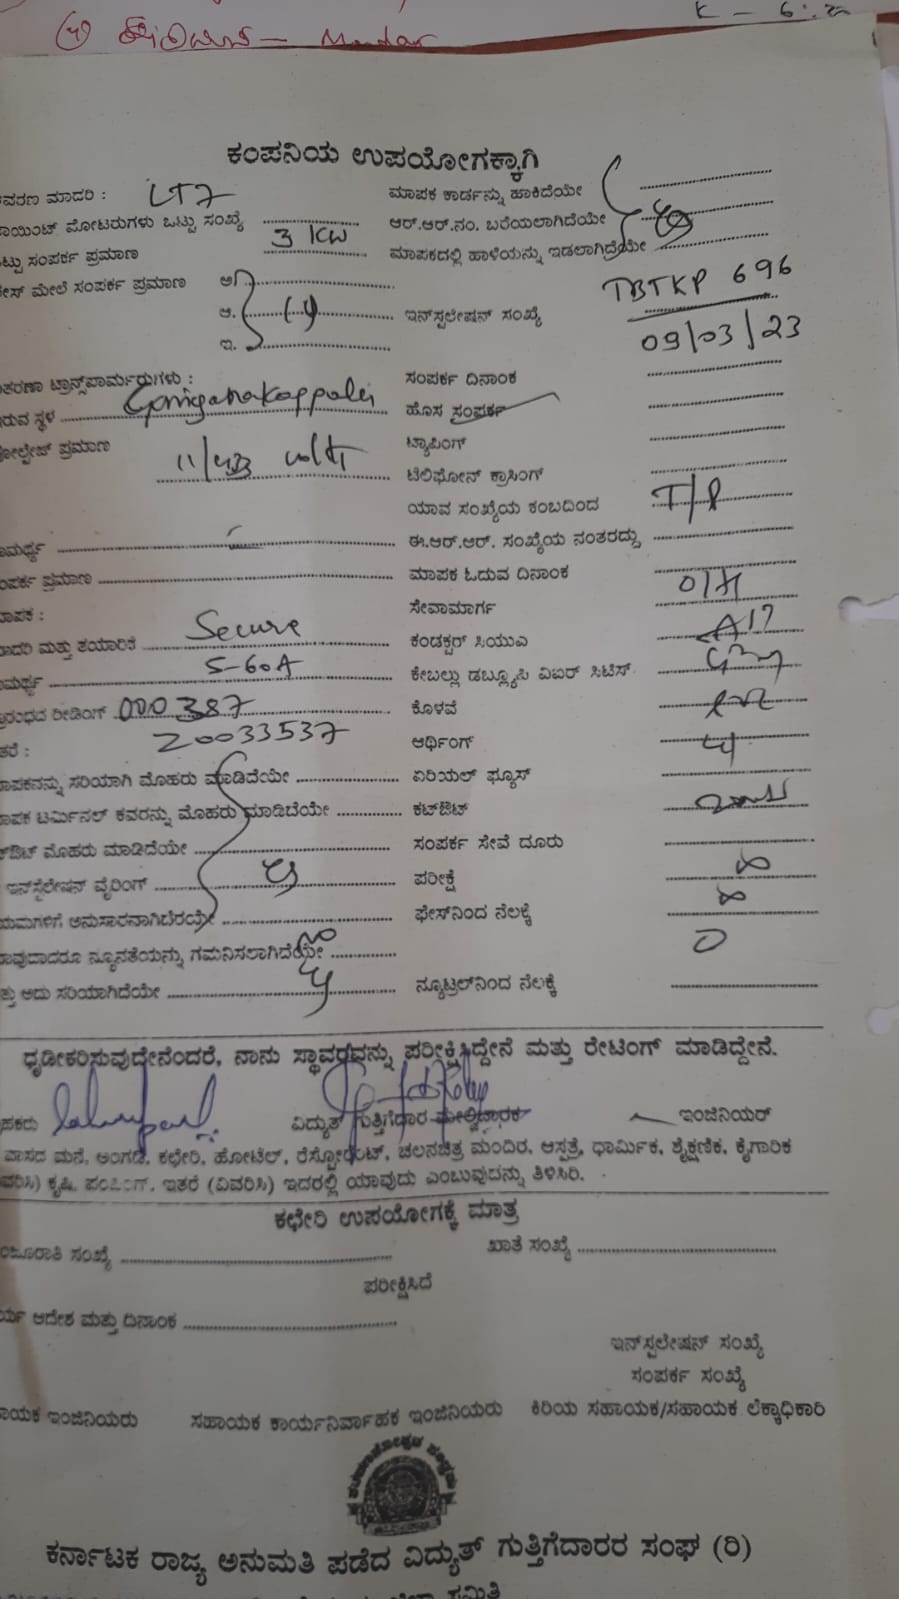 ಕಂಪನಿಯ ಉಪಯೋಗಕ್ಕಾಗಿ
ವರಣ ಮಾದರಿ : LT7 ಮಾಪಕ ಕಾರ್ಡನ್ನು ಹಾಕಿದೆಯೇ
ಾಯಿಂಟ್ ಮೋಟರುಗಳು ಒಟ್ಟು ಸಂಖ್ಯೆ ಆರ್.ಆರ್.ನಂ. ಬರೆಯಲಾಗಿದೆಯೇ
ಟ್ಟು ಸಂಪರ್ಕ ಪ್ರಮಾಣ 3 KW ಮಾಪಕದಲ್ಲಿ ಹಾಳೆಯನ್ನು ಇಡಲಾಗಿದೆಯೇ
ೇಸ್ ಮೇಲೆ ಸಂಪರ್ಕ ಪ್ರಮಾಣ ಅ.
ಆ. ಇನ್‌ಸ್ಟಲೇಷನ್ ಸಂಖ್ಯೆ TBTKP 696
ಇ.
09/03/23
ತರಣಾ ಟ್ರಾನ್ಸ್‌ಪಾರ್ಮರುಗಳು : ಸಂಪರ್ಕ ದಿನಾಂಕ
ರುವ ಸ್ಥಳ ಹೊಸ ಸಂಪರ್ಕ
ೋಲ್ಟೇಜ್ ಪ್ರಮಾಣ 11/433 volts ಟ್ಯಾಪಿಂಗ್
ಟೆಲಿಫೋನ್ ಕ್ರಾಸಿಂಗ್
ಯಾವ ಸಂಖ್ಯೆಯ ಕಂಬದಿಂದ T/P
ಾಮರ್ಥ್ಯ ಈ.ಆರ್.ಆರ್. ಸಂಖ್ಯೆಯ ನಂತರದ್ದು
ಂಪರ್ಕ ಪ್ರಮಾಣ ಮಾಪಕ ಓದುವ ದಿನಾಂಕ
ಾಪಕ : ಸೇವಾಮಾರ್ಗ O/H
ಾದರಿ ಮತ್ತು ತಯಾರಿಕೆ Secure ಕಂಡಕ್ಟರ್ ಸಿಯುಎ
ಾಮರ್ಥ್ಯ 5-60A ಕೇಬಲ್ಲು ಡಬ್ಲ್ಯೂಸಿ ವಿಐರ್ ಸಿಟಿಸ್
ಾರಂಭದ ರೀಡಿಂಗ್ 000387 ಕೊಳವೆ
ತರೆ : 20033537 ಆರ್ಥಿಂಗ್
ಾಪಕನನ್ನು ಸರಿಯಾಗಿ ಮೊಹರು ಮಾಡಿದೆಯೇ ಏರಿಯಲ್ ಫ್ಯೂಸ್
ಾಪಕ ಟರ್ಮಿನಲ್ ಕವರನ್ನು ಮೊಹರು ಮಾಡಿದೆಯೇ ಕಟ್‌ಔಟ್
ಟ್‌ಔಟ್ ಮೊಹರು ಮಾಡಿದೆಯೇ ಸಂಪರ್ಕ ಸೇವೆ ದೂರು
ಇನ್‌ಸ್ಟಲೇಷನ್ ವೈರಿಂಗ್ ಪರೀಕ್ಷೆ
ಯಮಗಳಿಗೆ ಅನುಸಾರವಾಗಿಬೆರಯೇ ಫೇಸ್‌ನಿಂದ ನೆಲಕ್ಕೆ
ಾವುದಾದರೂ ನ್ಯೂನತೆಯನ್ನು ಗಮನಿಸಲಾಗಿದೆಯೇ No
ತ್ತು ಅದು ಸರಿಯಾಗಿದೆಯೇ ನ್ಯೂಟ್ರಲ್‌ನಿಂದ ನೆಲಕ್ಕೆ
ಧೃಡೀಕರಿಸುವುದೇನೆಂದರೆ, ನಾನು ಸ್ಥಾವರವನ್ನು ಪರೀಕ್ಷಿಸಿದ್ದೇನೆ ಮತ್ತು ರೇಟಿಂಗ್ ಮಾಡಿದ್ದೇನೆ.
ಹಕರು ವಿದ್ಯುತ್ ಗುತ್ತಿಗೆದಾರ ಮೇಲ್ವಿಚಾರಕ ಇಂಜಿನಿಯರ್
ವಾಸದ ಮನೆ, ಅಂಗಡಿ, ಕಛೇರಿ, ಹೋಟೆಲ್, ರೆಸ್ಟೋರೆಂಟ್, ಚಲನಚಿತ್ರ ಮಂದಿರ, ಆಸ್ಪತ್ರೆ, ಧಾರ್ಮಿಕ, ಶೈಕ್ಷಣಿಕ, ಕೈಗಾರಿಕ
ವರಿಸಿ) ಕೃಷಿ, ಪಂಪಿಂಗ್, ಇತರೆ (ವಿವರಿಸಿ) ಇದರಲ್ಲಿ ಯಾವುದು ಎಂಬುವುದನ್ನು ತಿಳಿಸಿರಿ.
ಕಛೇರಿ ಉಪಯೋಗಕ್ಕೆ ಮಾತ್ರ
ಂಜೂರಾತಿ ಸಂಖ್ಯೆ ಖಾತೆ ಸಂಖ್ಯೆ
ಪರೀಕ್ಷಿಸಿದೆ
ರ್ಯ ಆದೇಶ ಮತ್ತು ದಿನಾಂಕ
ಇನ್‌ಸ್ಟಲೇಷನ್ ಸಂಖ್ಯೆ
ಸಂಪರ್ಕ ಸಂಖ್ಯೆ
ಾಯಕ ಇಂಜಿನಿಯರು ಸಹಾಯಕ ಕಾರ್ಯನಿರ್ವಾಹಕ ಇಂಜಿನಿಯರು ಕಿರಿಯ ಸಹಾಯಕ/ಸಹಾಯಕ ಲೆಕ್ಕಾಧಿಕಾರಿ
ಕರ್ನಾಟಕ ರಾಜ್ಯ ಅನುಮತಿ ಪಡೆದ ವಿದ್ಯುತ್ ಗುತ್ತಿಗೆದಾರರ ಸಂಘ (ರಿ)
ಸಮಿತಿ